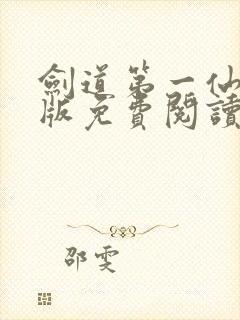 劍道第一仙
版免費閱讀
邵雯